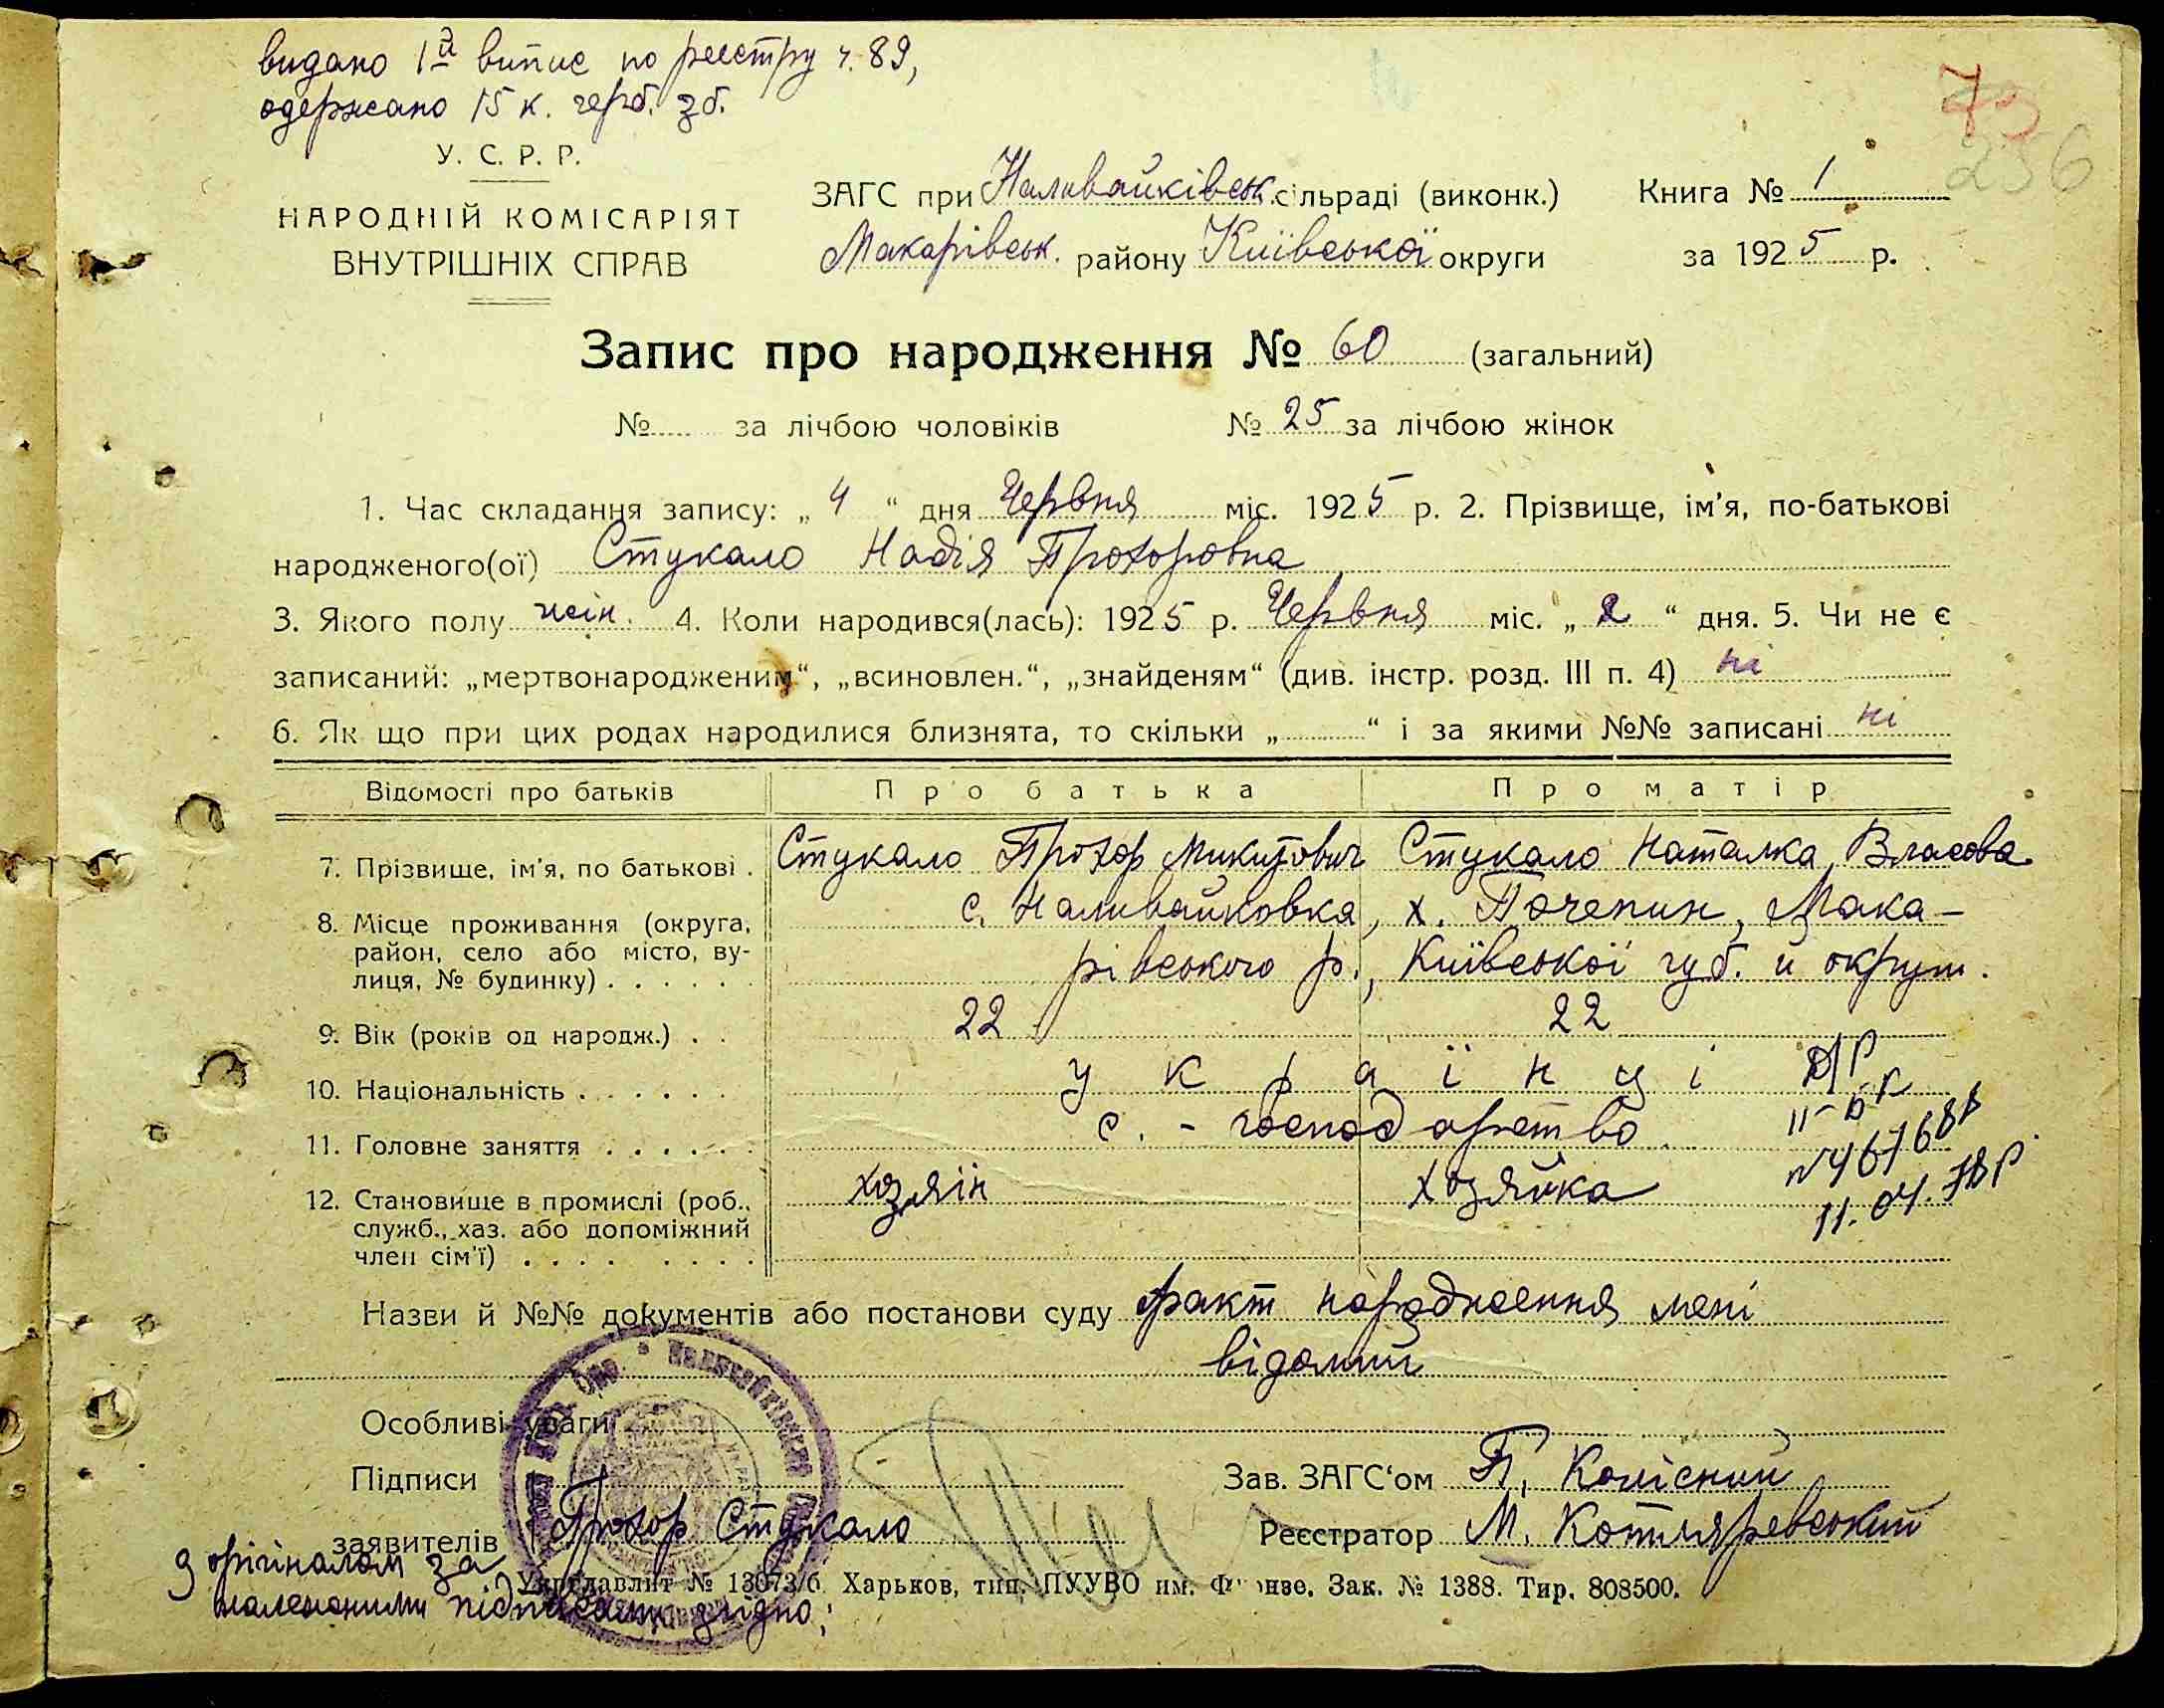 видано 1й випис по реєстру ч. 89,
одержано 15 к. герб. зб.
73
236
У. С. Р. Р.
НАРОДНІЙ КОМІСАРІЯТ
ВНУТРІШНІХ СПРАВ
ЗАГС при Наливайківськ. сільраді (виконк.)
Макарівськ. району Київської округи
Книга № 1
за 1925 р.
Запис про народження № 60 (загальний)
№ за лічбою чоловіків № 25 за лічбою жінок
1. Час складання запису: „ 4 “ дня Червня міс. 1925 р. 2. Прізвище, ім'я, по-батькові
народженого(ої) Стукало Надія Прохоровна
3. Якого полу жін. 4. Коли народився(лась): 1925 р. Червня міс. „ 2 “ дня. 5. Чи не є
записаний: „мертвонародженим“, „всиновлен.“, „знайденям“ (див. інстр. розд. III п. 4) ні
6. Як що при цих родах народилися близнята, то скільки „ “ і за якими №№ записані ні
Відомості про батьків Про батька Про матір
7. Прізвище, ім'я, по батькові . Стукало Прохор Микитович Стукало Наталка Власова
8. Місце проживання (округа, с. Наливайковка, х. Почепин, Мака-
район, село або місто, ву- рівського р., Київської губ. и округи.
лиця, № будинку) . . . . . .
9. Вік (років од народж.) . . 22 22
10. Національність . . . . . . українці
11. Головне заняття . . . . . . с. - господарство
12. Становище в промислі (роб., хозяін хозяйка
служб., хаз. або допоміжний
член сім'ї) . . . . . . . .
11. 04. 78 р.
Назви й №№ документів або постанови суду факт народження мені
відомий
Особливі уваги
Підписи
заявителів Прохор Стукало
Зав. ЗАГС'ом П. Колісний
Реєстратор М. Котляревський
З оригіналом за
належними підписами згідно:
Укрглавлит № 13073/б. Харьков, тип. ПУУВО им. Фрунзе. Зак. № 1388. Тир. 808500.